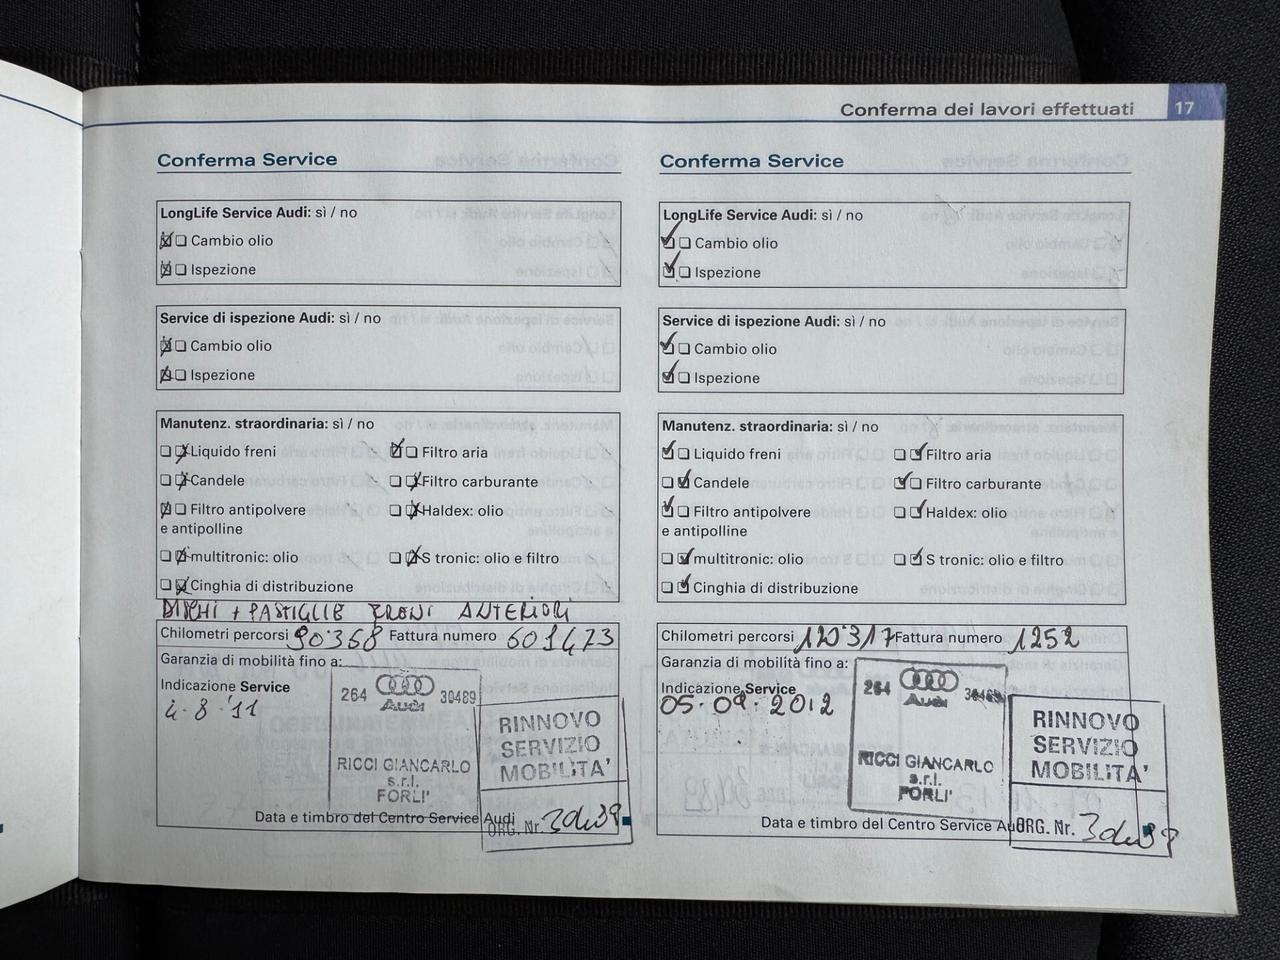 Conferma dei lavori effettuati 17
Conferma Service
LongLife Service Audi: sì / no
Cambio olio
Ispezione
Service di ispezione Audi: sì / no
Cambio olio
Ispezione
Manutenz. straordinaria: sì / no
Liquido freni Filtro aria
Candele Filtro carburante
Filtro antipolvere Haldex: olio
e antipolline
multitronic: olio S tronic: olio e filtro
Cinghia di distribuzione
DISCHI + PASTIGLIE FRENI ANTERIORI
Chilometri percorsi 90368 Fattura numero 601473
Garanzia di mobilità fino a:
Indicazione Service
4.8.'11
264 Audi 30489
RICCI GIANCARLO
s.r.l.
FORLI'
RINNOVO
SERVIZIO
MOBILITA'
Data e timbro del Centro Service Audi
ORG. Nr. 30489
Conferma Service
LongLife Service Audi: sì / no
Cambio olio
Ispezione
Service di ispezione Audi: sì / no
Cambio olio
Ispezione
Manutenz. straordinaria: sì / no
Liquido freni Filtro aria
Candele Filtro carburante
Filtro antipolvere Haldex: olio
e antipolline
multitronic: olio S tronic: olio e filtro
Cinghia di distribuzione
Chilometri percorsi 120317 Fattura numero 1252
Garanzia di mobilità fino a:
Indicazione Service
05.09.2012
264 Audi 30489
RICCI GIANCARLO
s.r.l.
FORLI'
RINNOVO
SERVIZIO
MOBILITA'
Data e timbro del Centro Service Audi
ORG. Nr. 30489